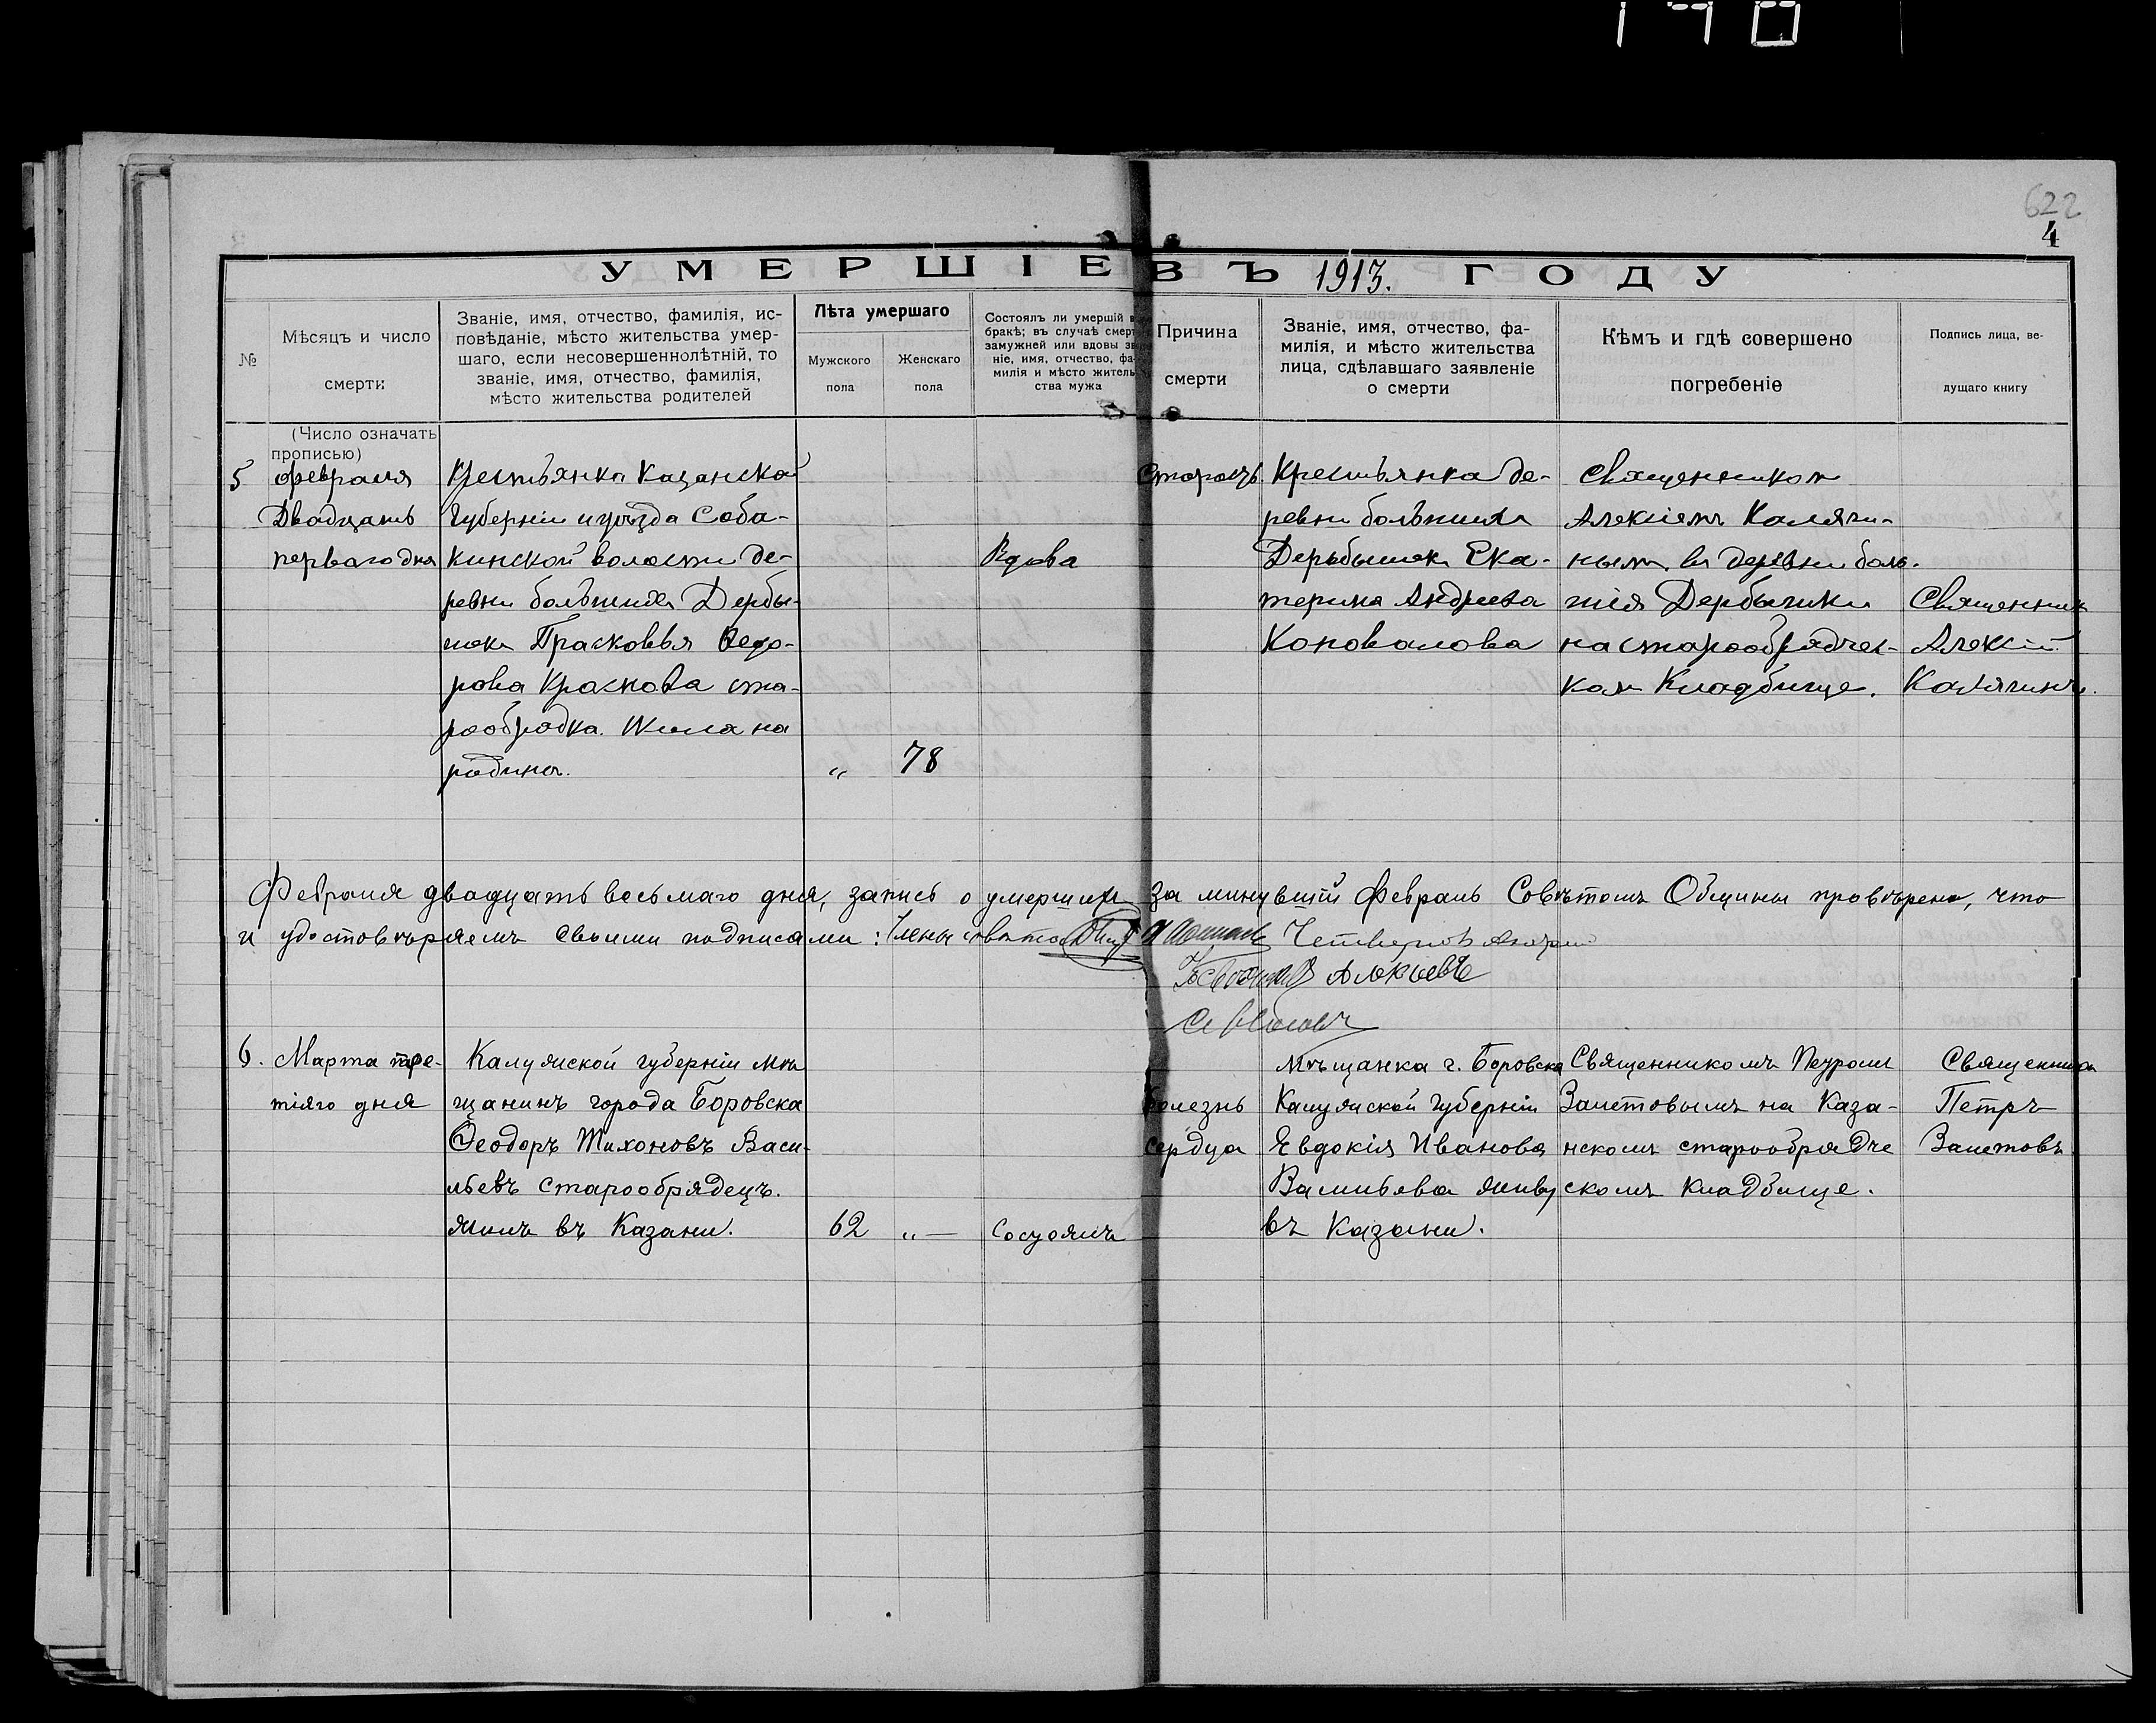 622
4
УМЕРШІЕ ВЪ 1913. ГОДУ
№
Мѣсяцъ и число
смерти
Званіе, имя, отчество, фамилія, ис-
повѣданіе, мѣсто жительства умер-
шаго, если несовершеннолѣтній, то
званіе, имя, отчество, фамилія,
мѣсто жительства родителей
Лѣта умершаго
Мужского
пола
Женскаго
пола
Состоялъ ли умершій в
бракѣ; въ случаѣ смерт
замужней или вдовы зв
ніе, имя, отчество, фа-
милія и мѣсто житель
ства мужа
Причина
смерти
Званіе, имя, отчество, фа-
милія, и мѣсто жительства
лица, сдѣлавшаго заявленіе
о смерти
Кѣмъ и гдѣ совершено
погребеніе
Подпись лица, ве-
дущаго книгу
(Число означать
прописью)
5
Февраля
Двадцать
перваго дня
Крестьянка Казанской
Губерніи и уѣзда Соба-
кинской волости де-
ревни большихъ Дербы-
шек Прасковья Ѳедо-
рова Краснова ста-
рообрядка. Жила на
родинѣ.
„
78
Вдова
Старость
Крестьянка де-
ревни большихъ
Дербышек Ека-
терина Андреева
Коновалова
Священником
Алексіемъ Каляги-
ным, въ деревни боль-
шія Дербышки
на старообрядчес-
ком Кладбище.
Священник
Алексій
Калягинъ.
Февраля двадцать восьмаго дня, запись о умерших за минувшій Февраль Совѣтомъ Общины провѣрена, что
и удостовѣряемъ своими подписами: Члены совѣта Четвергов
Алексѣевъ
6.
Марта тре-
тіяго дня
Калужской губерніи мѣ
щанинъ города Боровска
Ѳеодоръ Тихоновъ Васи-
льевъ старообрядецъ.
Жилъ въ Казани.
62
„ —
Состоялъ
болезнь
сердца
Мѣщанка г. Боровска
Калужской Губерніи
Евдокія Иванова
Васильева живу
въ Казани.
Священникомъ Петромъ
Залетовымъ на Каза-
нскомъ старообрядче
скомъ Кладбище.
Священник
Петръ
Залетовъ